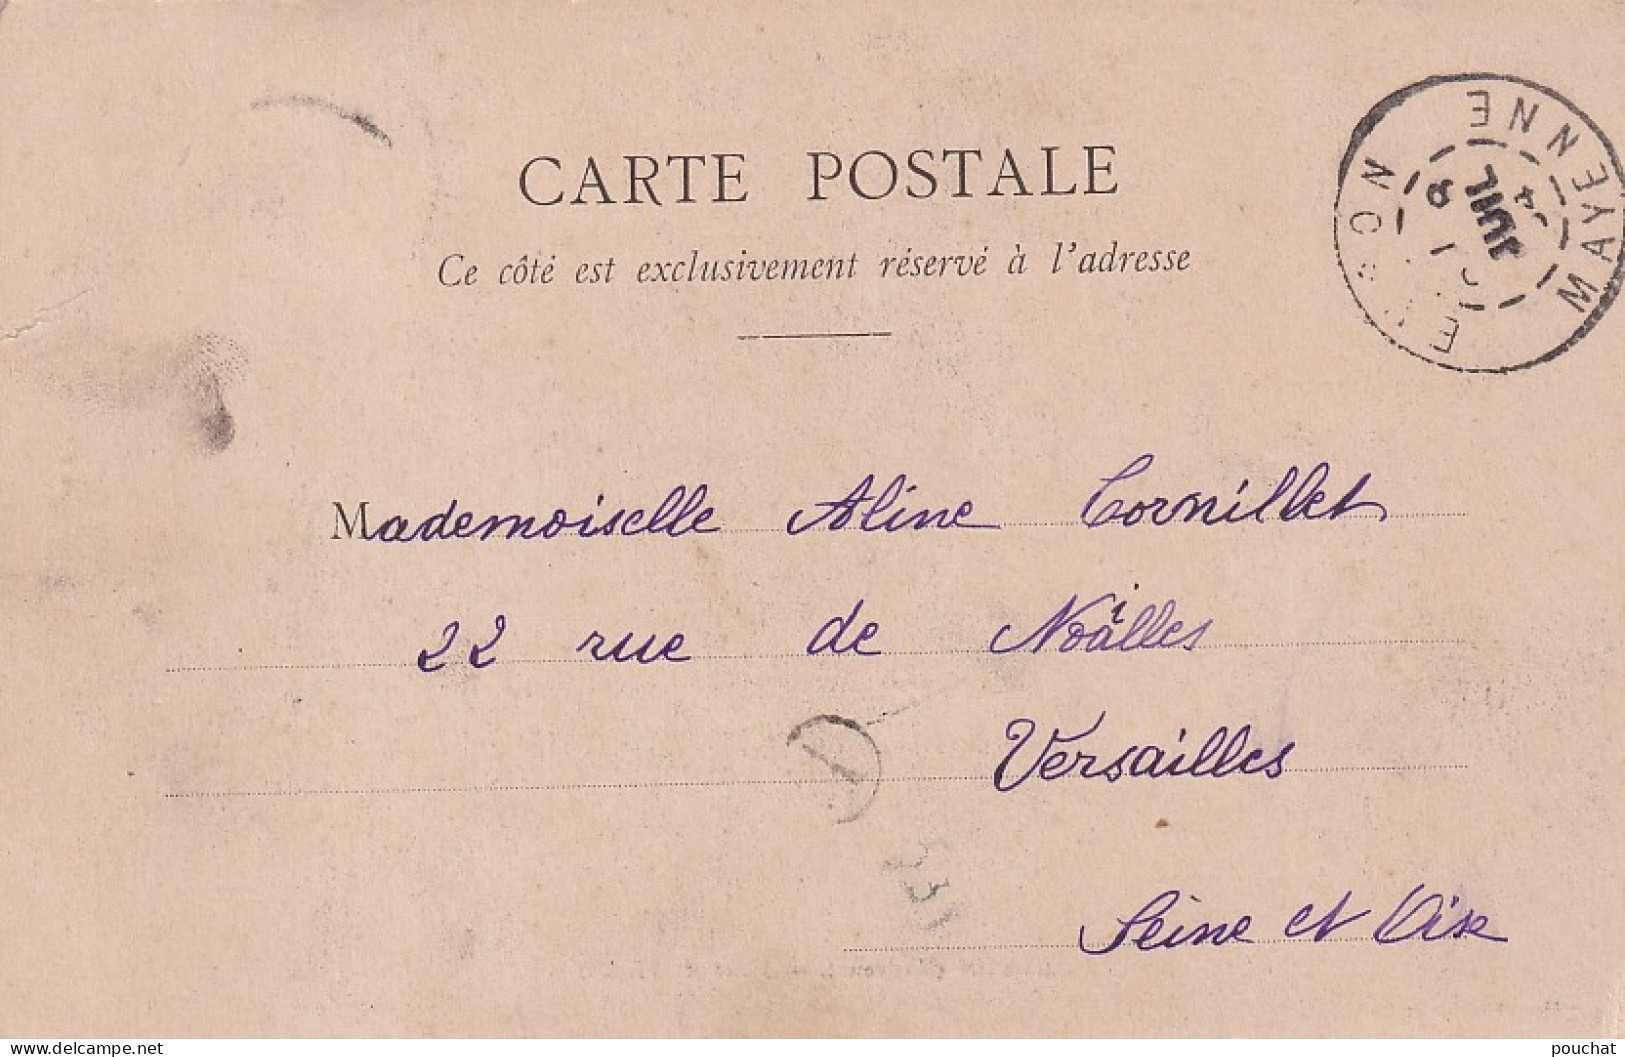 CARTE POSTALE
Ce côté est exclusivement réservé à l'adresse
MAYENNE
JUIL
Mademoiselle Aline Cornillet
22 rue de Noailles
Versailles
Seine et Oise
https://www.delcampe.net
pouchat